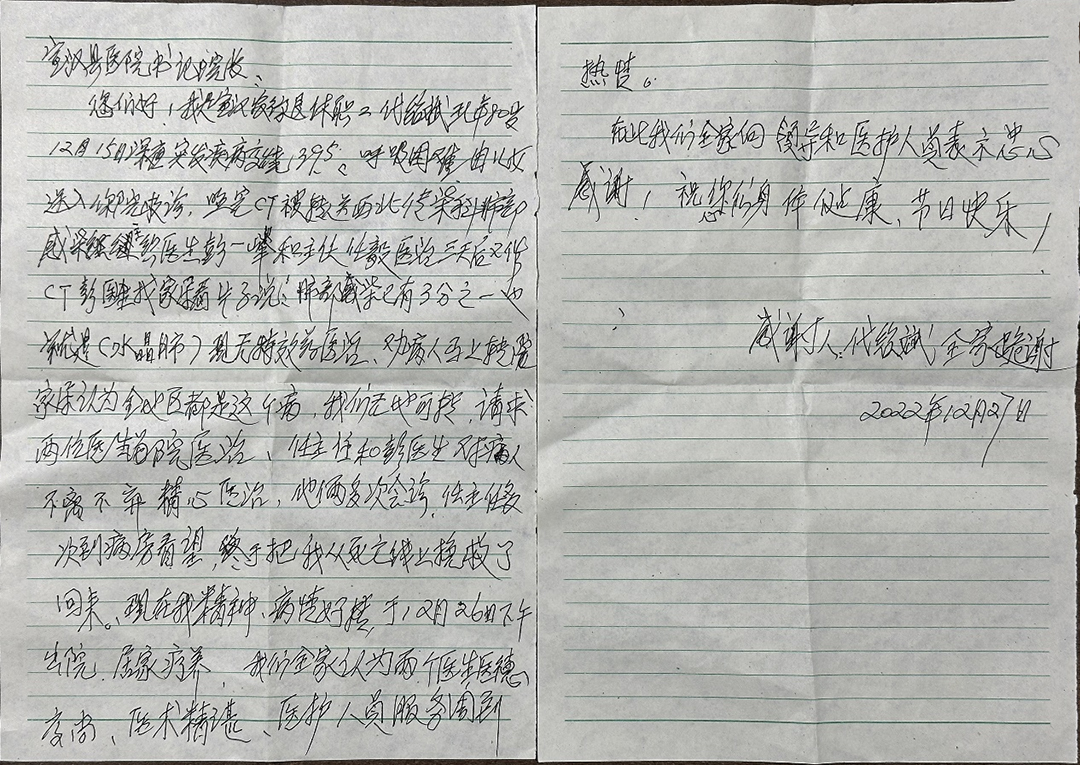 宣汉县医院书记、院长、
您们好！我是宣汉家 退休职工代 斌 年80岁
12月15日深 突发 病 烧39.5℃呼吸困难 由
送入 院 诊， 完CT被转 西北传染科肺部
感染 彭医生彭一 和主任任毅医治三天后又作
CT彭医生找家属看片子说：肺部感染已有3分之一也
就是（水晶肺）现无特效药医治，劝病人马上转院
家属认为全地区都是这个病，我们无地可转，请求
两位医生 院医治、任主任和彭医生对病人
不离不弃 精心医治，他俩多次会诊，任主任多
次到病房看望，终于把我从死亡线上挽救了
回来。现在我精神、病情好转，于12月26日下午
出院 居家疗养，我们全家认为两个医生医德
高尚、医术精湛、医护人员服务周到
热情。
在此我们全家向领导和医护人员表示忠心
感谢！祝您们身体健康、节日快乐！
感谢人、代 斌 全家 谢
2022年12月27日